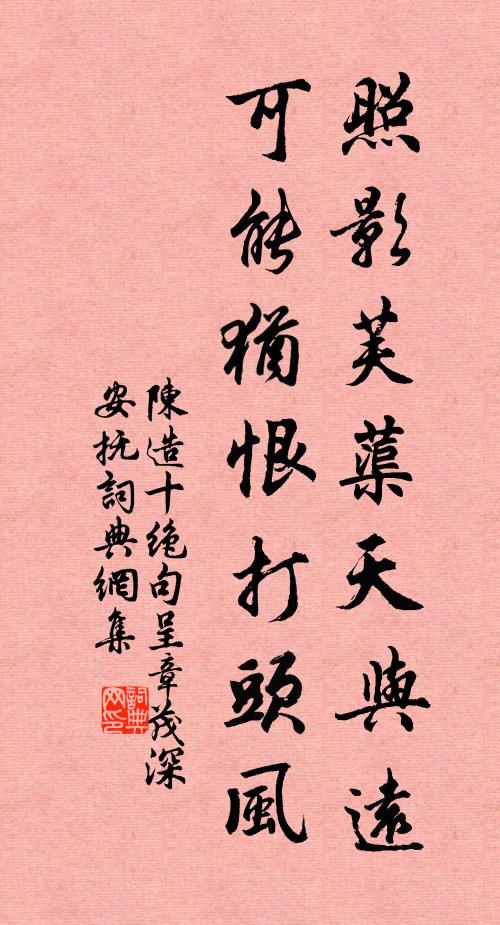 照影芙蕖天與遠
可能猶恨打頭風
陳造十絶句呈章茂深
安抚詞典網集
詞典网印